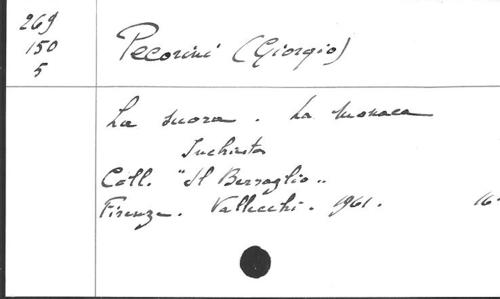 269
150
5
Pecorini (Giorgio)
La suora. La monaca
Inchiesta
Coll. "Il Bersaglio"
Firenze. Vallecchi. 1961. 16°